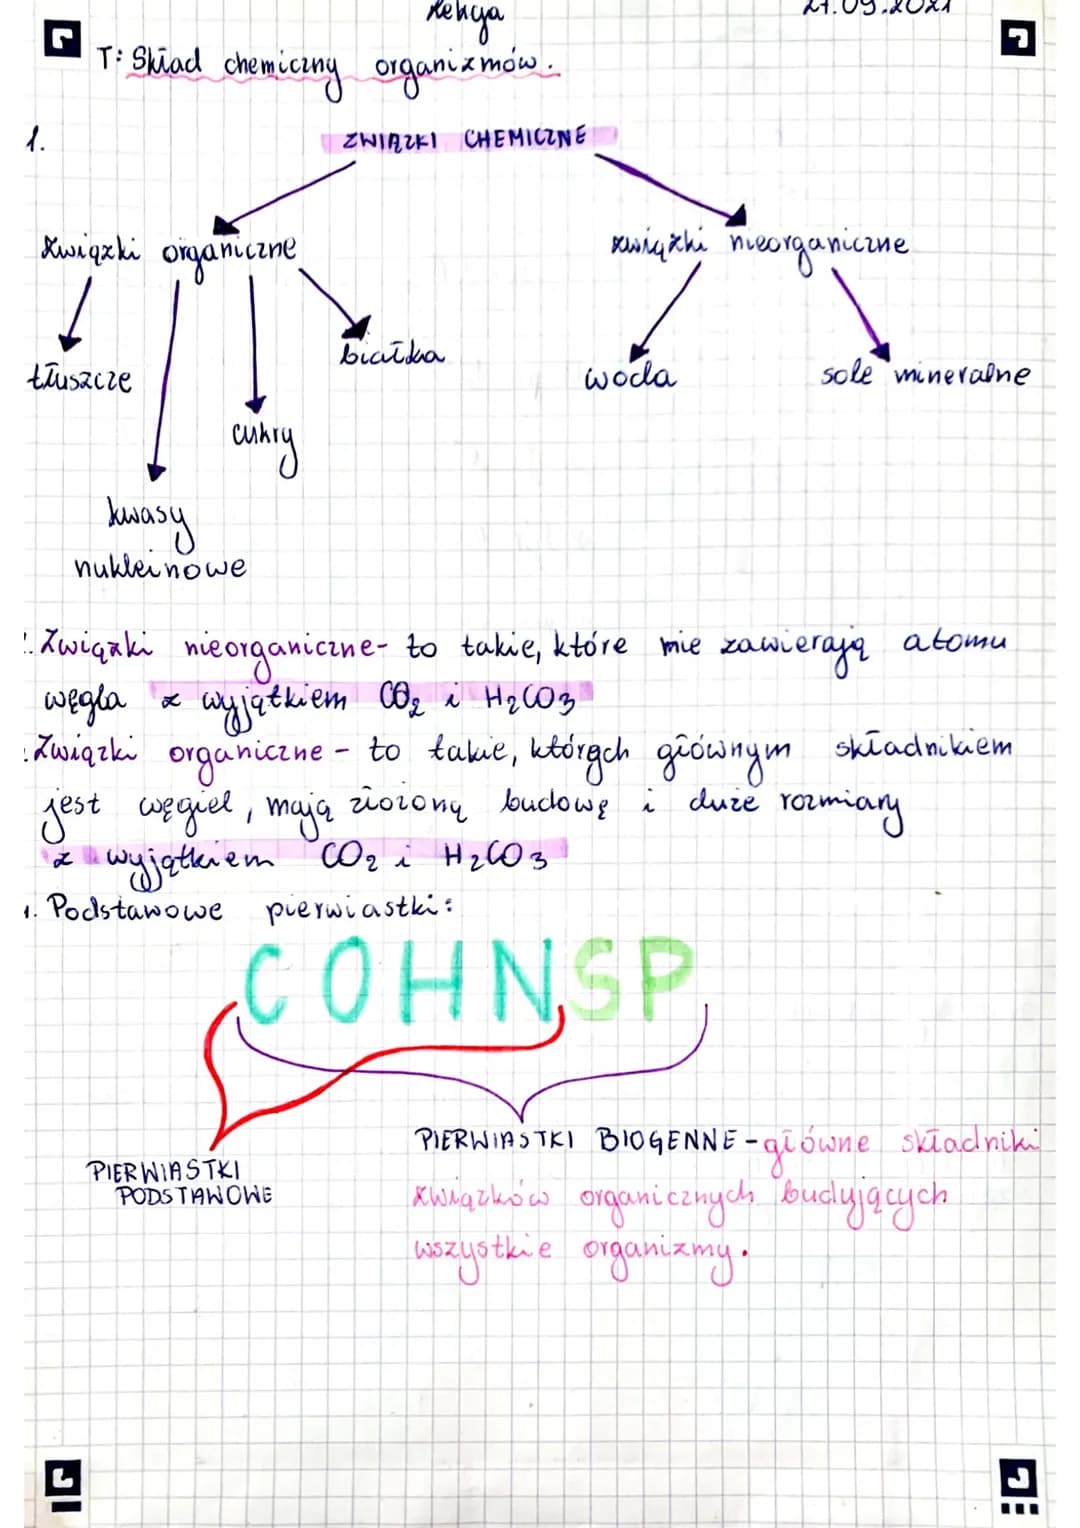 Lekcja 27.09.2021
T: Skład chemiczny organizmów.
1. ZWIĄZKI CHEMICZNE
związki organiczne związki nieorganiczne
tłuszcze białka woda sole mineralne
cukry
kwasy
nukleinowe
2. Związki nieorganiczne- to takie, które nie zawierają atomu
węgla z wyjątkiem CO2 i H2CO3
Związki organiczne - to takie, których głównym składnikiem
jest węgiel, mają złożoną budowę i duże rozmiary
z wyjątkiem CO2 i H2CO3
Podstawowe pierwiastki:
COHNSP
PIERWIASTKI BIOGENNE - główne składniki
PIERWIASTKI
PODSTAWOWE związków organicznych budujących
wszystkie organizmy.